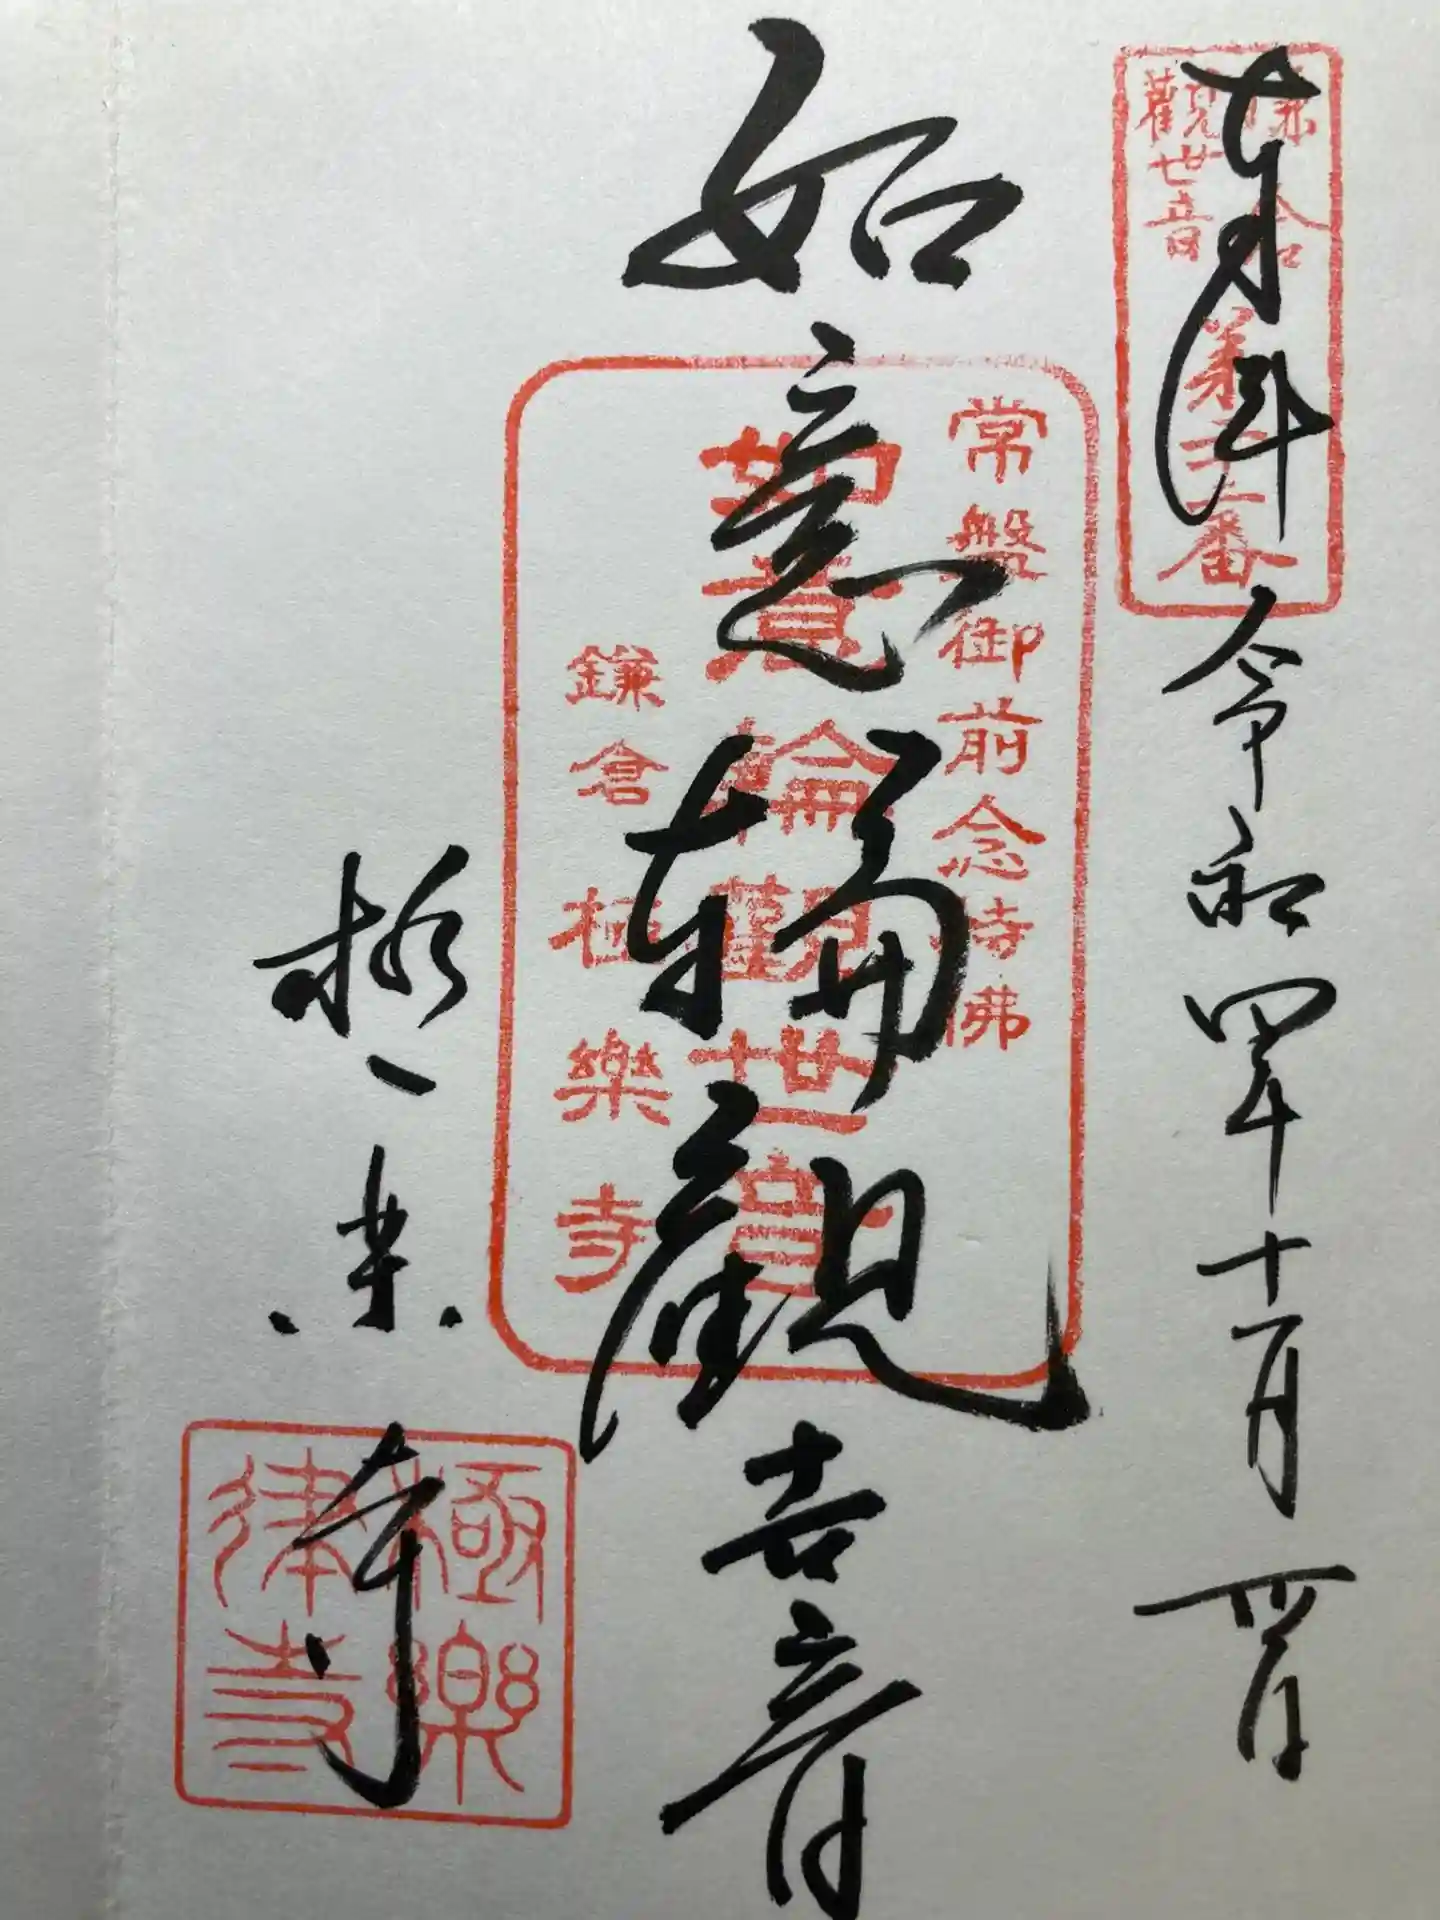 奉拝 令和四年十月
鎌倉
觀世音
如意輪觀世音
常盤御前念持佛
如意輪觀世音
鎌倉極樂寺
極楽寺
極樂
律寺